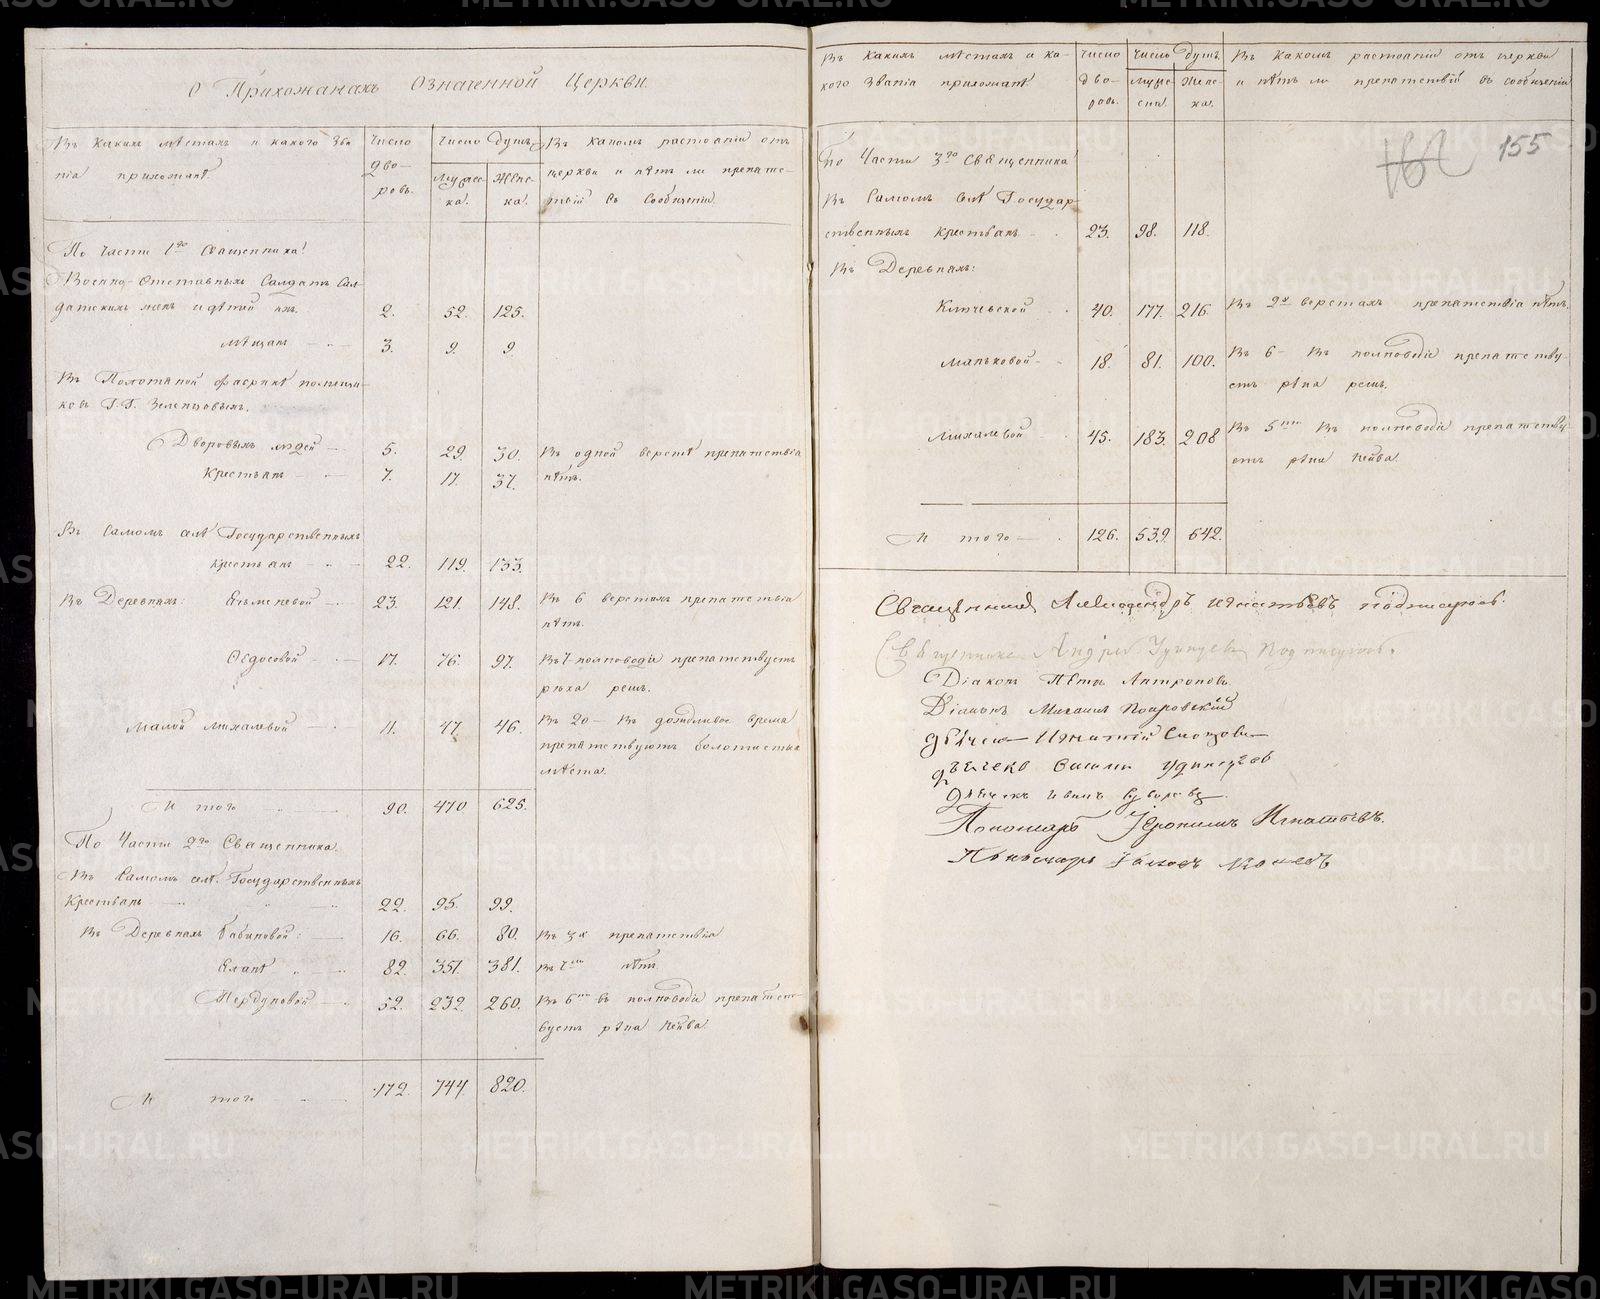 О Прихожанахъ Означенной Церкви.
Въ какихъ мѣстахъ и какого Зва-
нія прихожанѣ.
Число
дво-
ровъ.
Число Душъ.
Мужес-
ка.
Женс-
ка.
Въ какомъ растояніи отъ
церкви и нѣтъ ли препятс-
твій въ Сообщеніи.
По Части 1го Священника!
Военно-Отставныхъ Салдатъ Сал-
датскихъ женъ и дѣтей ихъ. 2. 52. 125.
мѣщанъ 3. 9. 9.
Въ Полотяной фабрикѣ помѣщи-
ковъ Г.Г. Зеленцовыхъ.
Дворовыхъ людей 5. 29. 30. Въ одной верстѣ препятствія
Крестьянъ 7. 17. 37. нѣтъ.
Въ Самомъ селѣ Государственныхъ
крестьянъ 22. 119. 133.
Въ Деревняхъ: 23. 121. 148. Въ 6 верстахъ препятствія
нѣтъ.
Ѳедосовой 17. 76. 97. Въ 7 полноводіи препятствуетъ
рѣка режъ.
Малой Михалевой 11. 47. 46. Въ 20 Въ дождливое время
препятствуютъ болотистыя
мѣста.
И того 90. 470. 625.
По Части 2го Священника.
Въ Самомъ селѣ Государственныхъ
Крестьянъ 22. 95. 99.
Въ Деревняхъ Бабиновой: 16. 66. 80. Въ 3х препятствія
82. 351. 381. Въ 7ми нѣтъ.
52. 232. 260. Въ 6ти въ полноводіи препятст-
вуетъ рѣка Нейва.
И того 172. 744. 820.
Въ какихъ мѣстахъ и ка-
кого Званія прихожанѣ.
Число
дво-
ровъ.
Число Душъ.
Мужес-
ска.
Женс-
ка.
Въ какомъ растояніи отъ церкви
и нѣтъ ли препятствій въ сообщеніи
155
По Части 3го Священника!
Въ Самомъ селѣ Государ-
ственныхъ крестьянъ 23. 98. 118.
Въ Деревняхъ:
Ключевской 40. 177. 216. Въ 2х верстахъ препятствія нѣтъ.
Маньковой 18. 81. 100. Въ 6 Въ полноводіи препятству-
етъ рѣка режъ.
Михалевой 45. 183. 208 Въ 5ти Въ полноводіи препятству-
етъ рѣка Нейва.
И того 126. 539. 642.
Священникъ Александръ Игнатьевъ подписуюсь.
Священникъ Андрей Удинцевъ подписуюсь.
Діаконъ Петръ Антроповъ.
Діаконъ Михаилъ Покровскій
дьячекъ Игнатій Словцовъ
дьячекъ Василій Удинцовъ
дьячекъ Иванъ Суворовъ.
Пономарь Іеронимъ Игнатьевъ.
Пономарь Іаковъ
METRIKI.GASO-URAL.RU